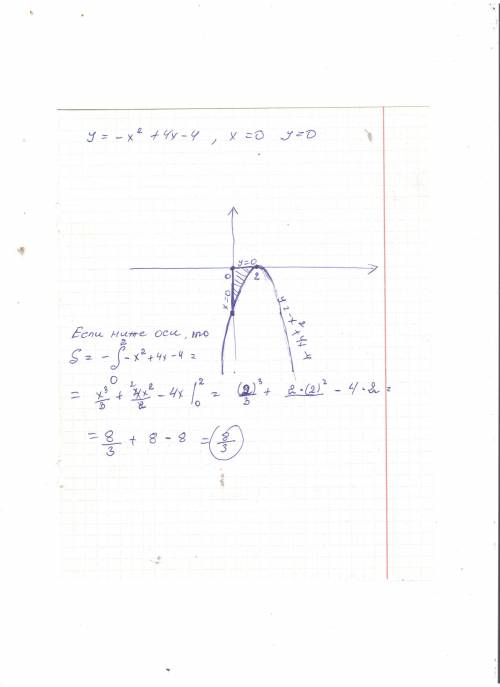 y = -x² + 4x - 4 , x = 0 y = 0
y=0
0
2
x=0
y = -x²+4x-4
Если ниже оси, то
S = - ∫₀² -x² + 4x - 4 =
= x³/3 + 4x²/2 - 4x |₀² = (2)³/3 + 2·(2)²  - 4·2 =
= 8/3 + 8 - 8 = 8/3